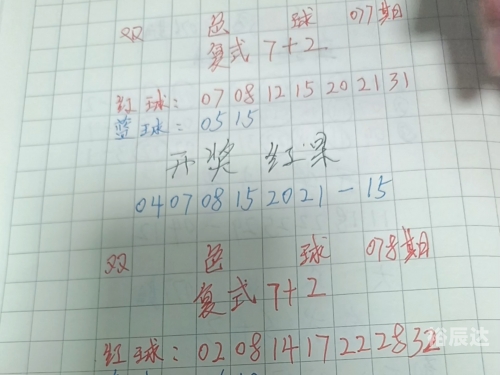 双 色 球 077期
复式 7+2
红球: 07 08 12 15 20 21 31
蓝球: 05 15
开奖 红果
04 07 08 15 20 21-15
双 色 球 078期
复式 7+2
红球: 02 08 14 17 22 28 32